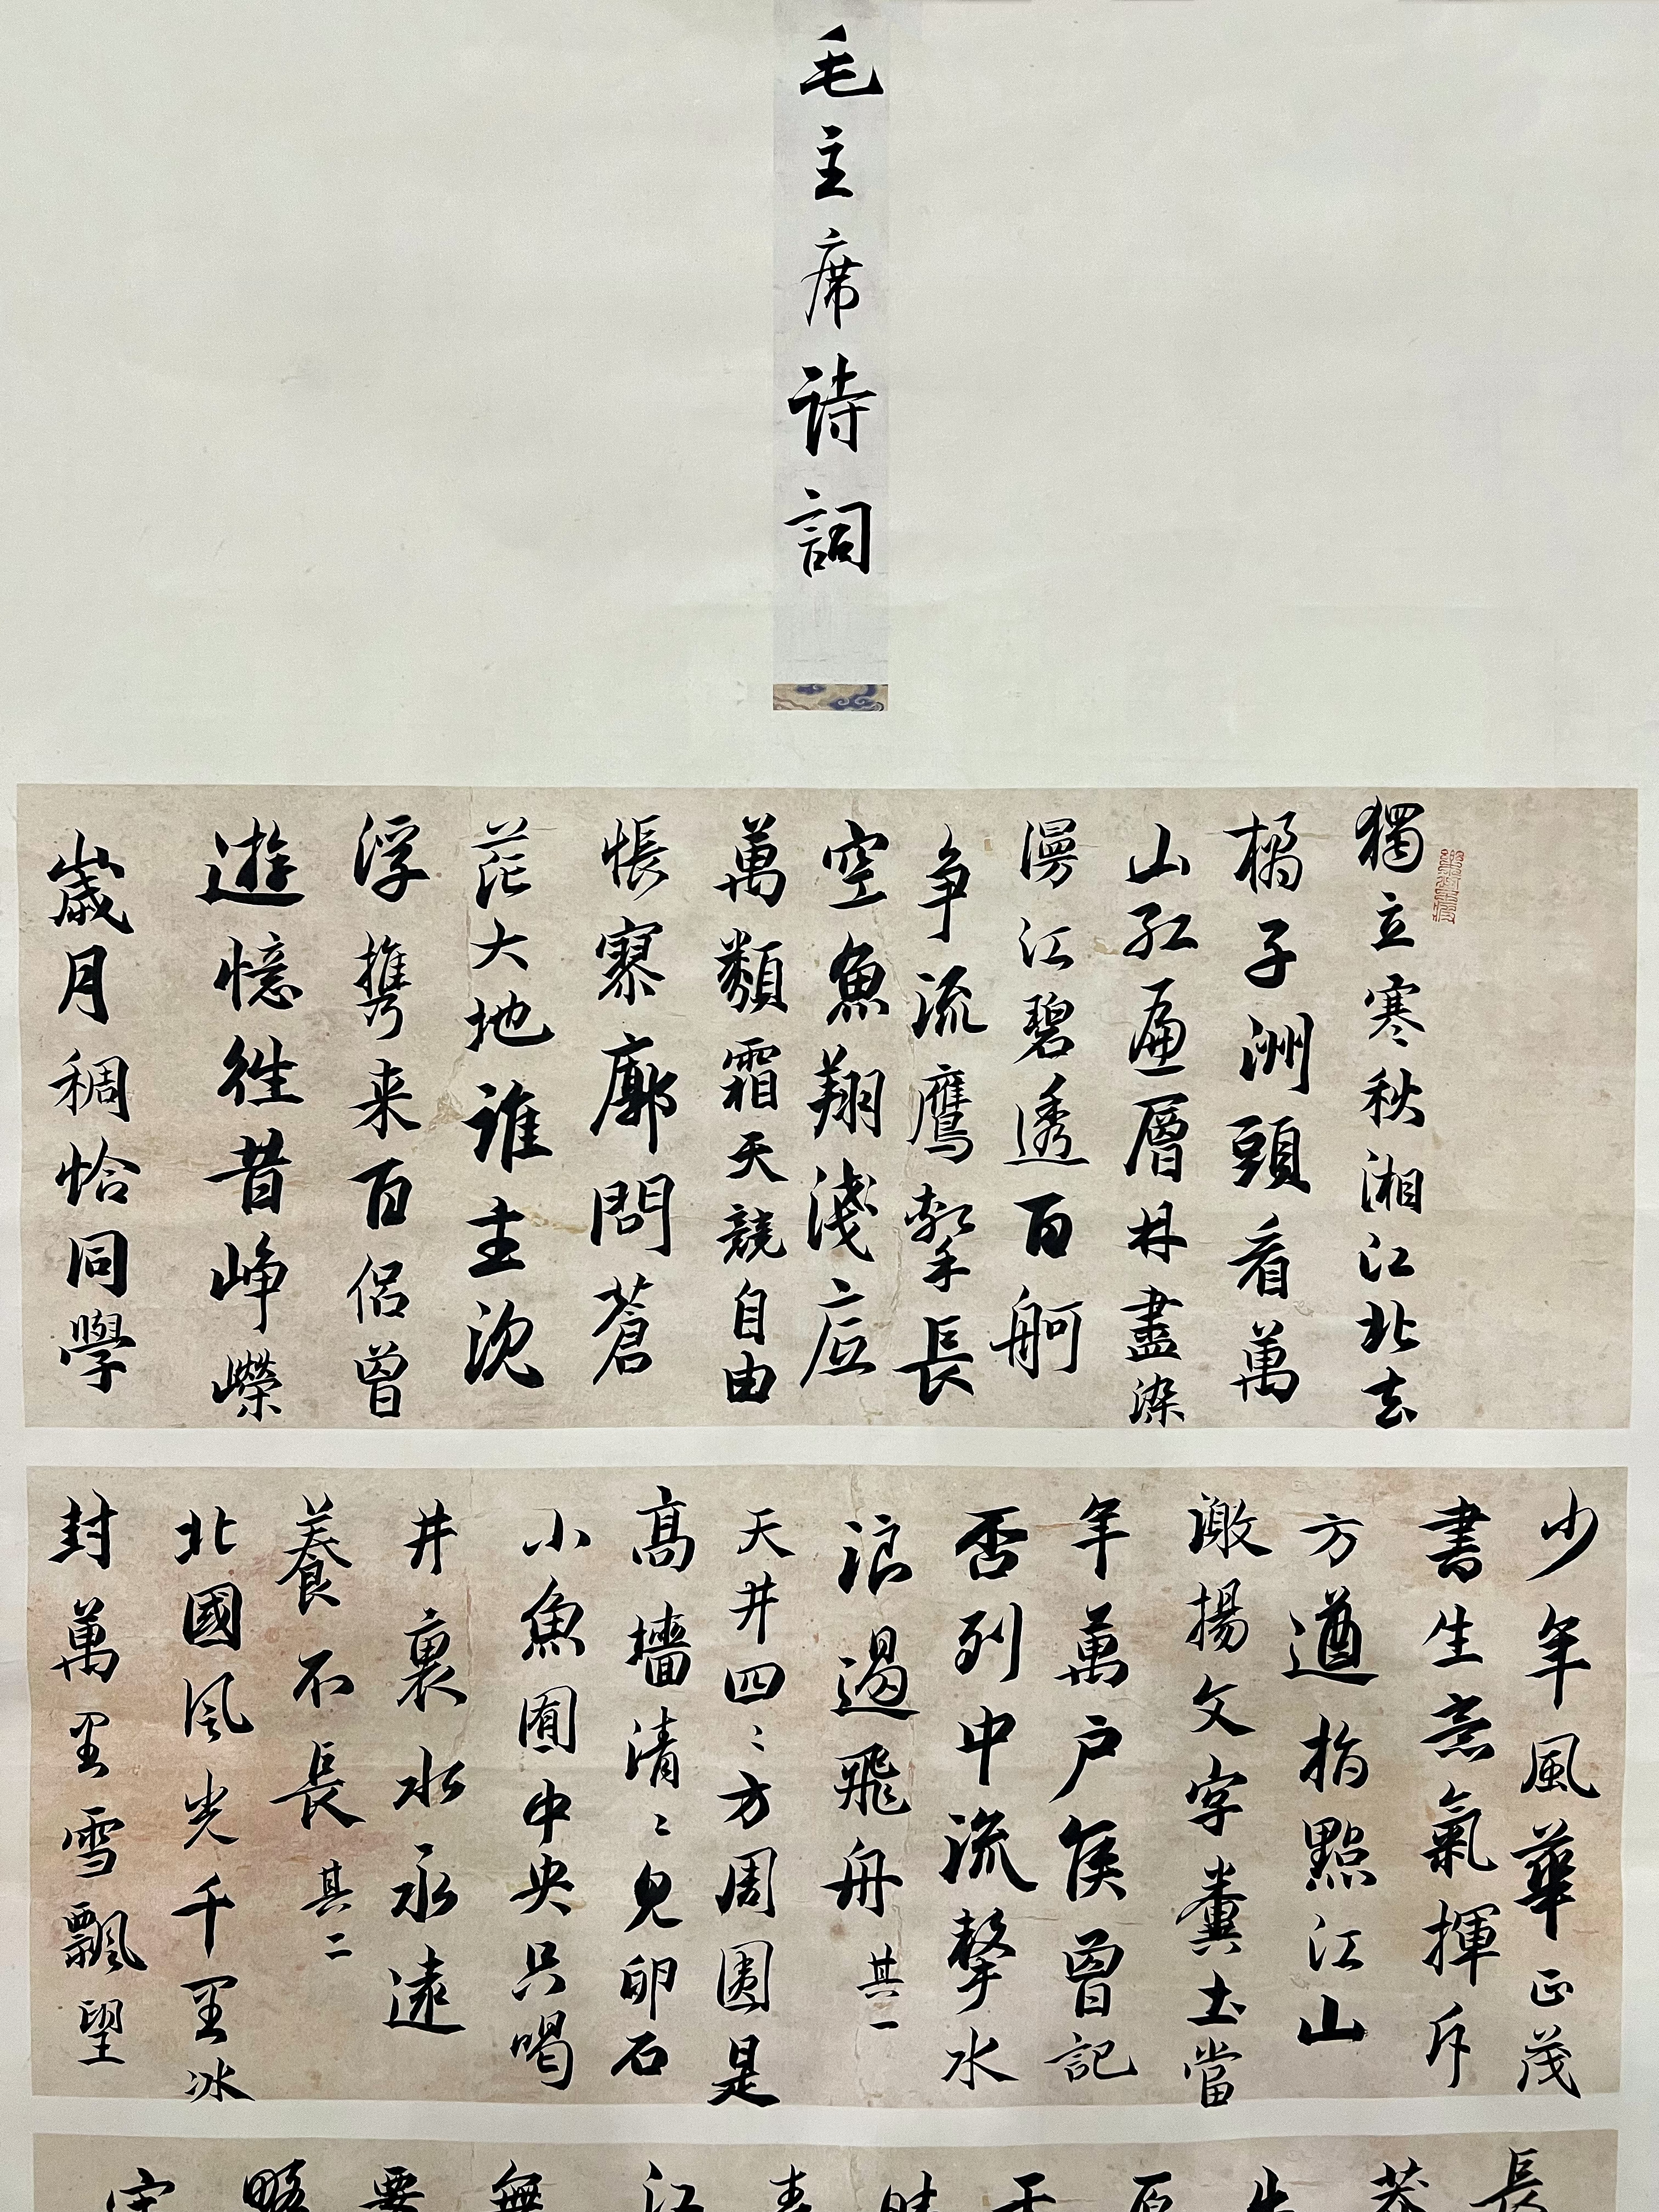 毛主席詩詞
獨立寒秋湘江北去
橘子洲頭看萬
山紅遍層林盡染
漫江碧透百舸
爭流鷹擊長
空魚翔淺底
萬類霜天競自由
悵寥廓問蒼
茫大地誰主沉
浮攜来百侣曾
遊憶往昔崢嶸
歲月稠恰同學
少年風華正茂
書生意氣揮斥
方遒指點江山
激揚文字糞土當
年萬户侯曾記
否到中流擊水
浪遏飛舟其一
天井四〻方周圍是
高牆清〻見卵石
小魚囿中央只喝
井裏水永遠
養不長其二
北國風光千里冰
封萬里雪飄望
長